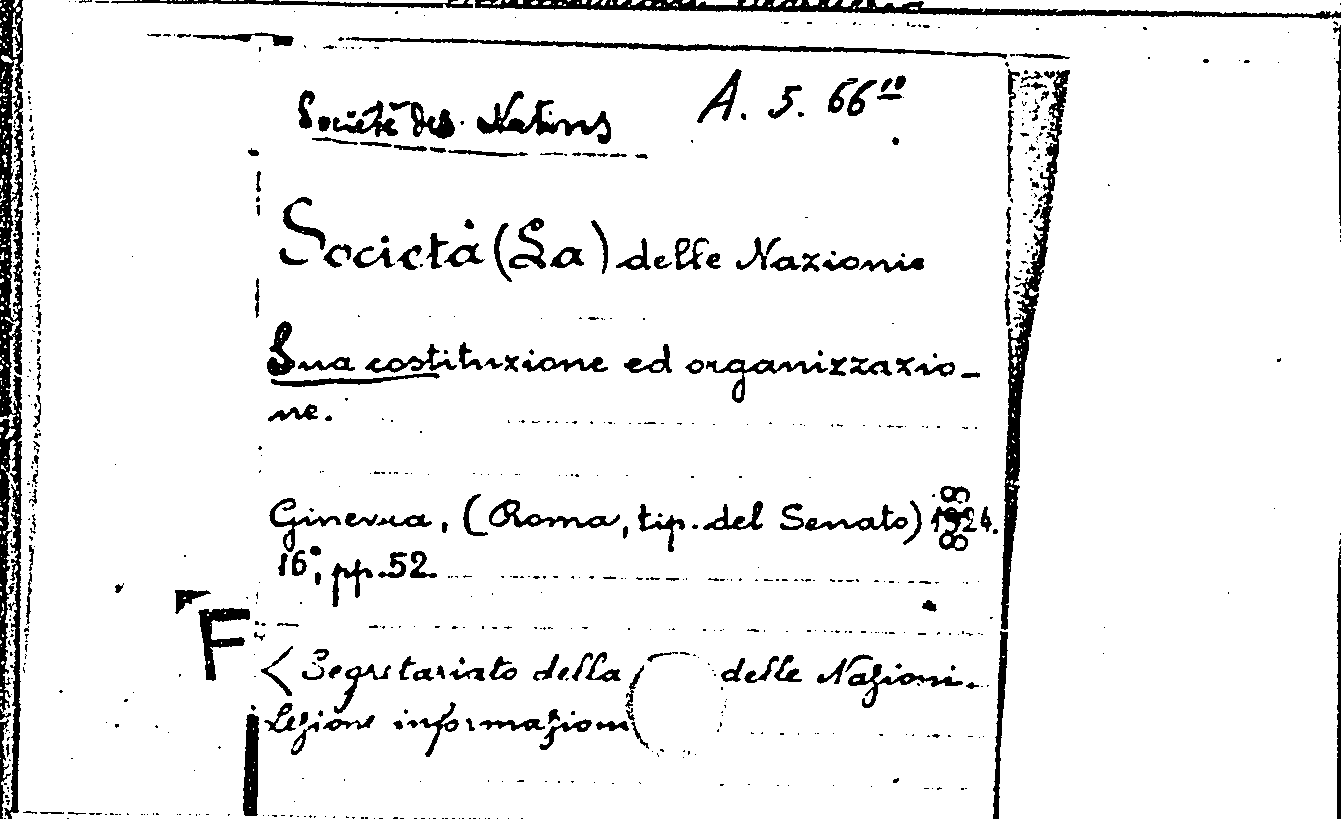 Societé des Nations
A. 5. 66¹⁰
Società (La) delle Nazioni
Sua costituzione ed organizzazio-
ne.
Ginevra, (Roma, tip. del Senato) 1924.
16°, pp. 52.
F
< Segretariato della delle Nazioni.
Sezione informazioni